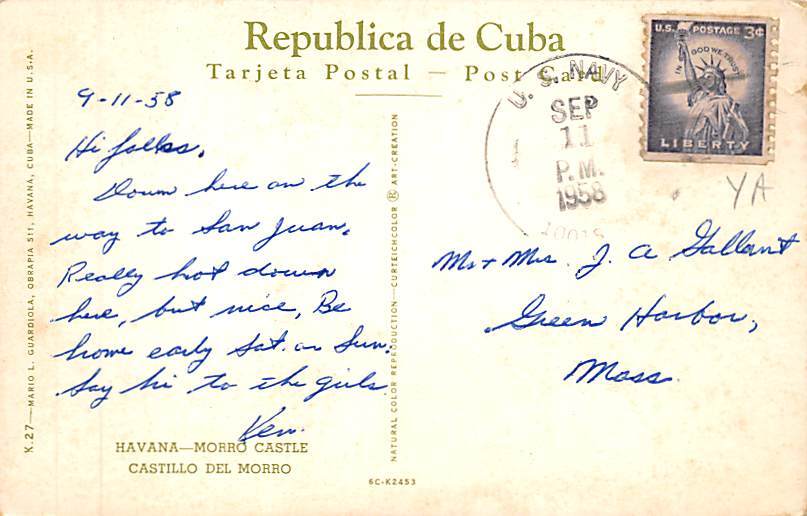 Republica de Cuba
Tarjeta Postal — Post Card
U.S. NAVY
SEP
11
P.M.
1958
U.S. POSTAGE 3¢
IN GOD WE TRUST
LIBERTY
YA
9-11-58
Hi folks,
Down here on the
way to San Juan.
Really hot down
here, but nice, Be
home early Sat. or Sun.
Say hi to the girls
Ken.
Mr + Mrs. J. A Gallant
Green Harbor,
Mass.
HAVANA—MORRO CASTLE
CASTILLO DEL MORRO
X.27—MARIO L. GUARDIOLA, OBRAPIA 511, HAVANA, CUBA—MADE IN U.S.A.
NATURAL COLOR REPRODUCTION—CURTEICHCOLOR ® ART-CREATION
6C-K2453